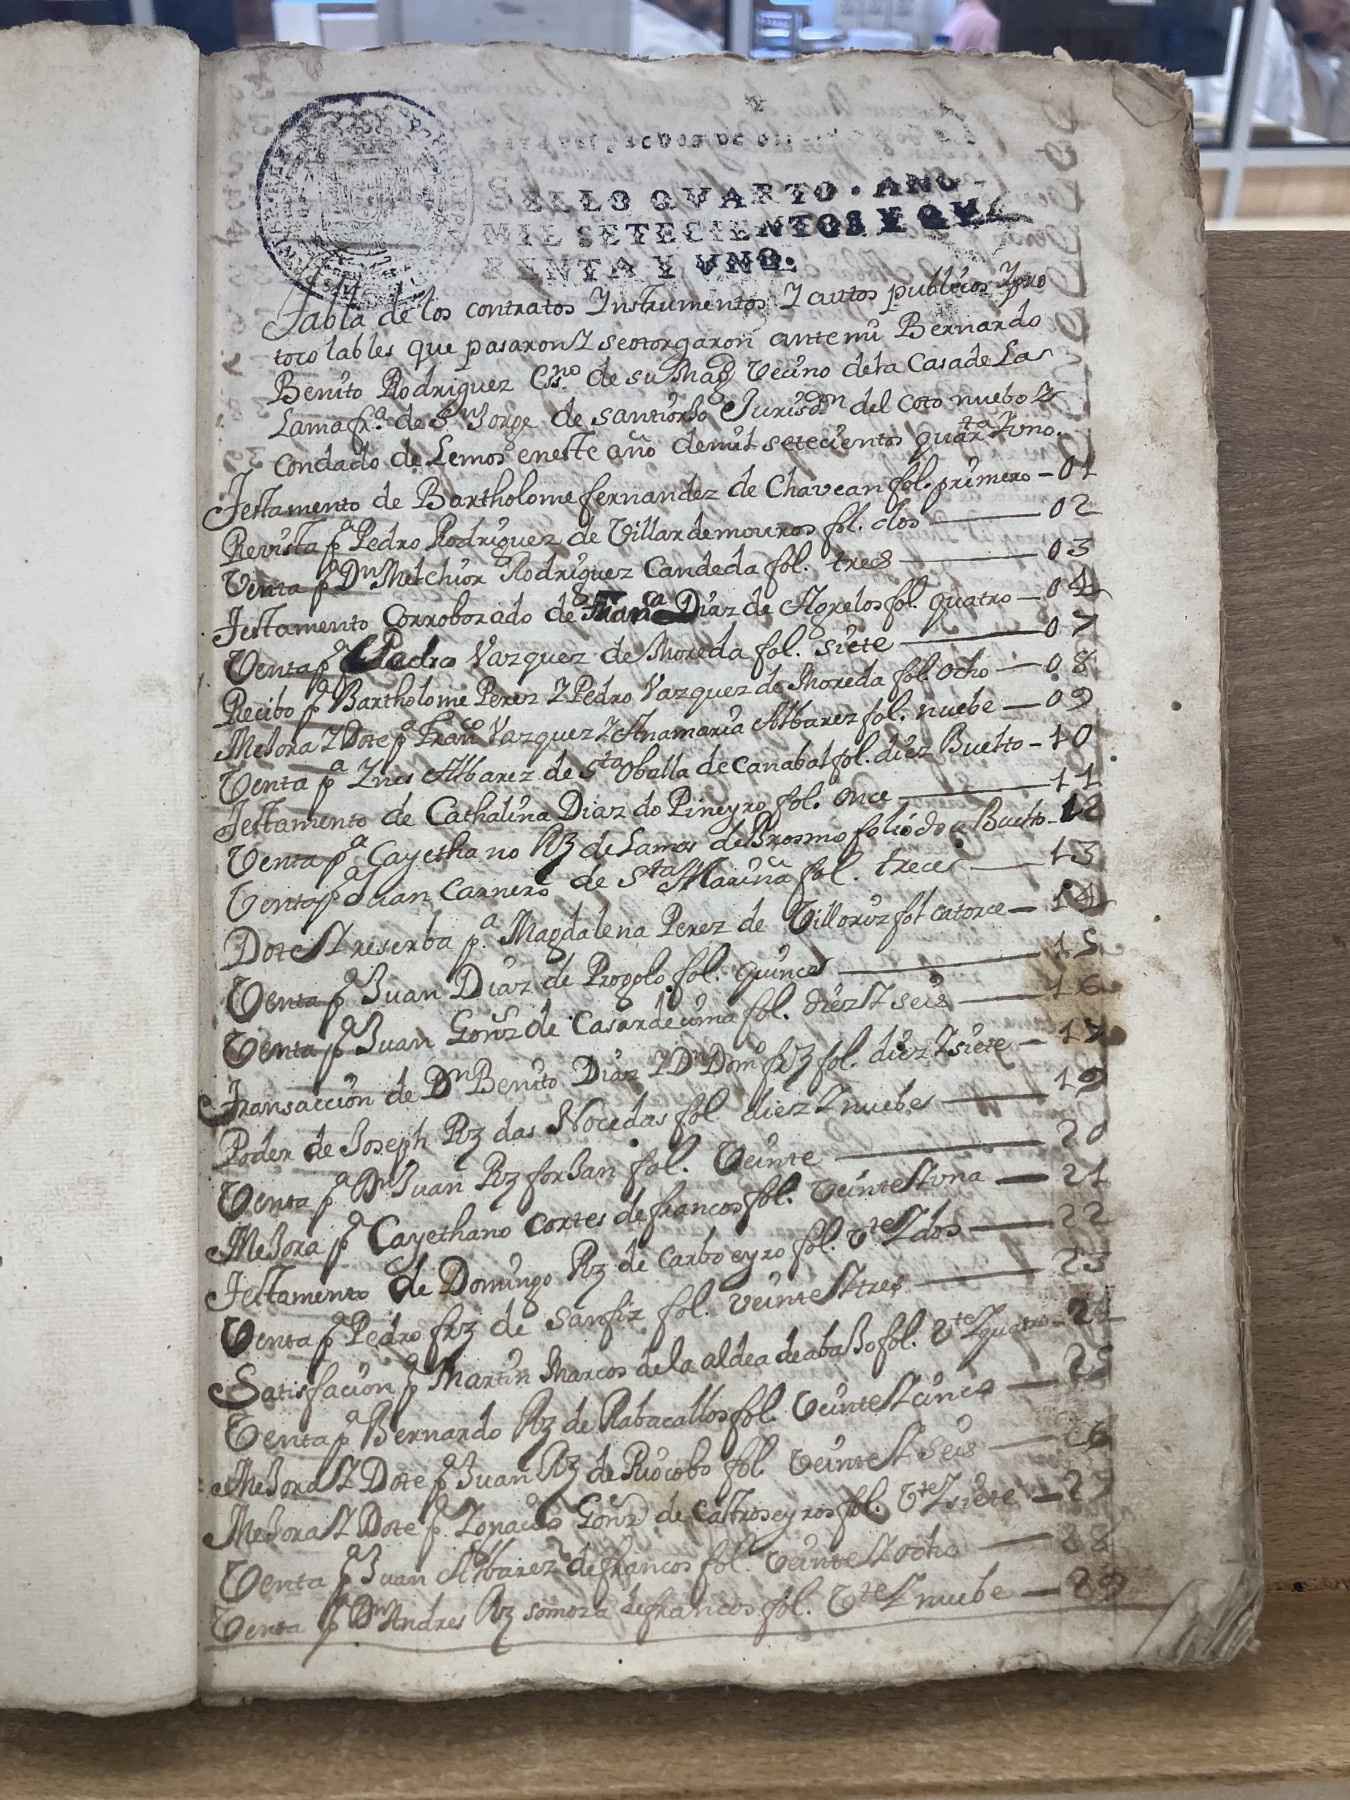 SELLO QVARTO. AÑO
MIL SETECIENTOS Y QVA
RENTA Y VNO.
Tabla de los contratos Ynstrumentos Y autos publicos Y pro
tocolables que pasaron Y seotorgaron ante mi Bernardo
Benito Rodriguez Essno de su Magd Vecino dela Casa de Las
Lamas fra. de Sn Jorge de santiorJo Jurisdn del coto nuebo Y
Condado de Lemos eneste año demil setecientos quarta Yuno.
Testamento de Bartholome fernandez de Chavean fol. primero - 01
Revista pa Pedro Rodriguez de Villardemouros fol. dos - 02
Venta pa Dn Melchior Rodriguez Candeda fol. tres - 03
Testamento Corroborado de Franca Diaz de Agrelos fol. quatro - 04
Venta pa Pedro Vazquez de Moreda fol. siete - 07
Recibo pa Bartholome Perez Y Pedro Vazquez de Moreda fol. ocho - 08
MeJora Y Dote pa Franco Vazquez Y Anamaria Albarez fol. nuebe - 09
Venta pa Ynes Albarez de Sta oballa de canabal fol. diez Buelto - 10
Testamento de Cathalina Diaz do Pineyro fol. once - 11
Venta pa Cayethano Rz de Lamas de Brosmo folio doce Buelto - 12
Venta pa Juan Carnero de Sta Mariña fol. trece - 13
Dote Y reserba pa. Magdalena Perez de Villoruz fol catorce - 14
Venta pa Juan Diaz de Progolo fol. quince - 15
Venta pa Juan Gonz de Casardecima fol. diez Y seis - 16
Transaccion de Dn Benito Diaz Y Dn Domo frz fol. diez Y siete - 17
Poder de Joseph Rz das Nocedas fol. diez Y nuebe - 19
Venta pa Dn Juan Rz forJan fol. Veinte - 20
MeJora pa Cayethano Cortes de francos fol. Veinte Y una - 21
Testamento de Domingo Rz de Carboeyro fol. Vte Y dos - 22
Venta pa Pedro frz de sanfiz fol. veinte Y tres - 23
Satisfacion pa Martin Marcos dela aldea de abaJo fol. Vte Y quatro - 24
Venta pa Bernardo Rz de Rabacallos fol. Veinte Y cinco - 25
MeJora Y Dote pa Juan Rz de Riocobo fol Veinte Y seis - 26
MeJora Y Dote pa. Ygnacio Gonz de Castroseyros fol. Vte Y siete - 27
Venta pa Juan Albarez de francos fol. veinte Y ocho - 28
Venta pa Dn Andres Rz somoza de francos fol. Vte Y nuebe - 29